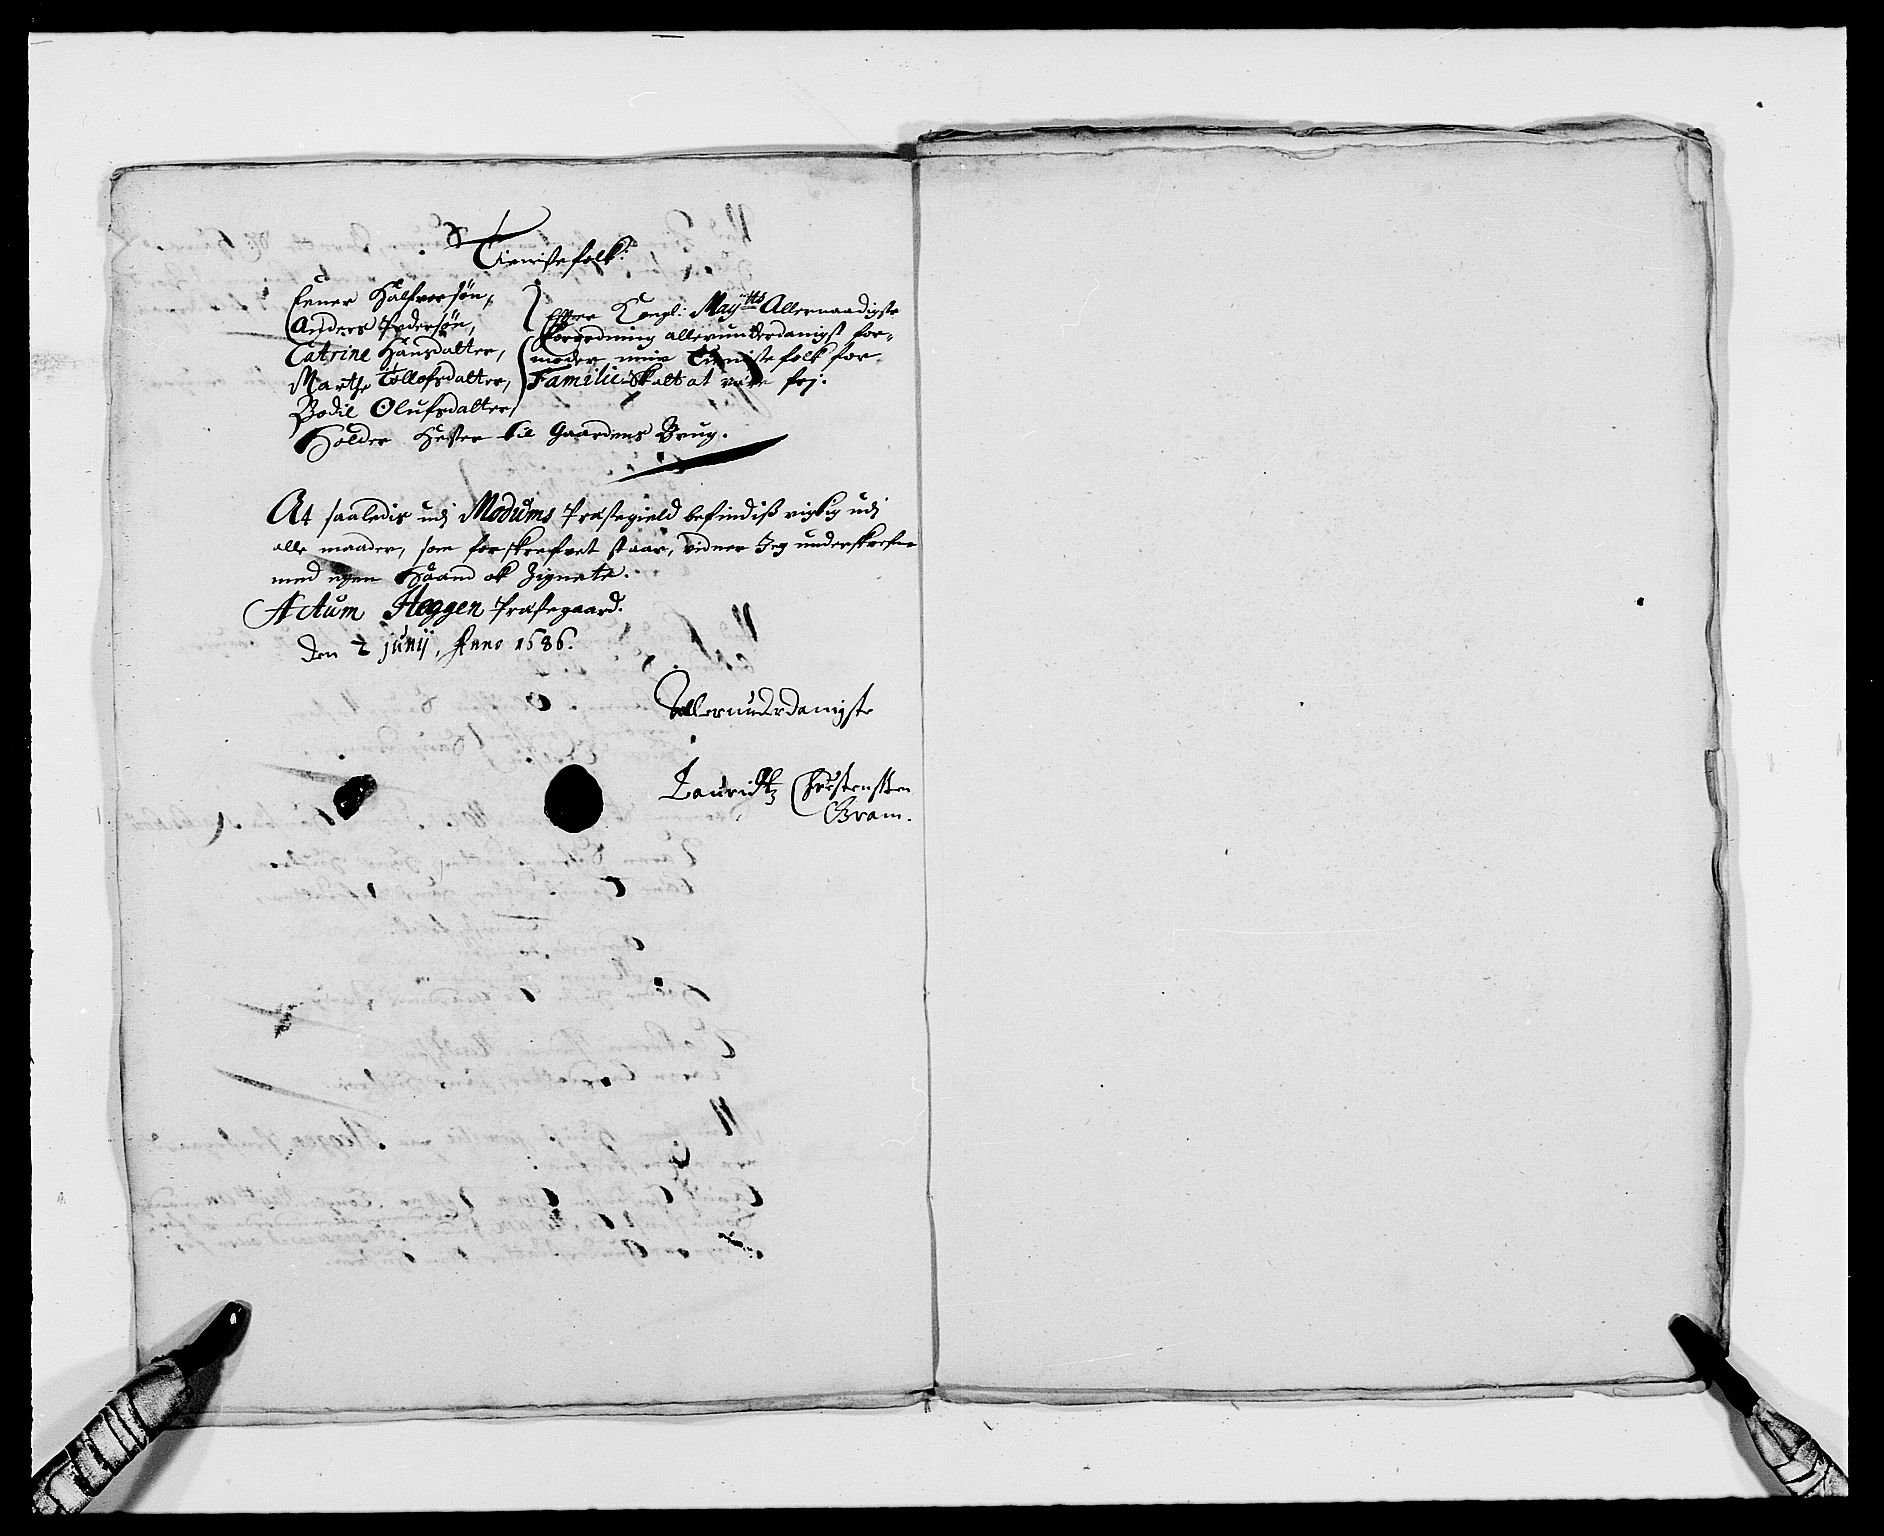 Tienistefolk.
Einer Halfvorsøn,
Anders Pedersøn,
Catrine Hansdatter,
Marthe Tollofsdatter,
Bodil Olufsdatter
Efter Kongl: Maytts Allernaadigste
forordning allerunderdanigst for-
moder mine Tienistefolk for
Familie Skatt at være frj.
Holder Hester til Gaardens Brug.
At saaledis udj Modums Præstegield befindiss rigtig udj
alle maader, som forskrefvet staar, vidner Jeg underskrefne
med egen Haand ok Zignete.
Actum Heggen Præstegaard.
den 2 Junij, Anno 1686.
Allerunderdanigste
Lauridtz Christensen
Gram.